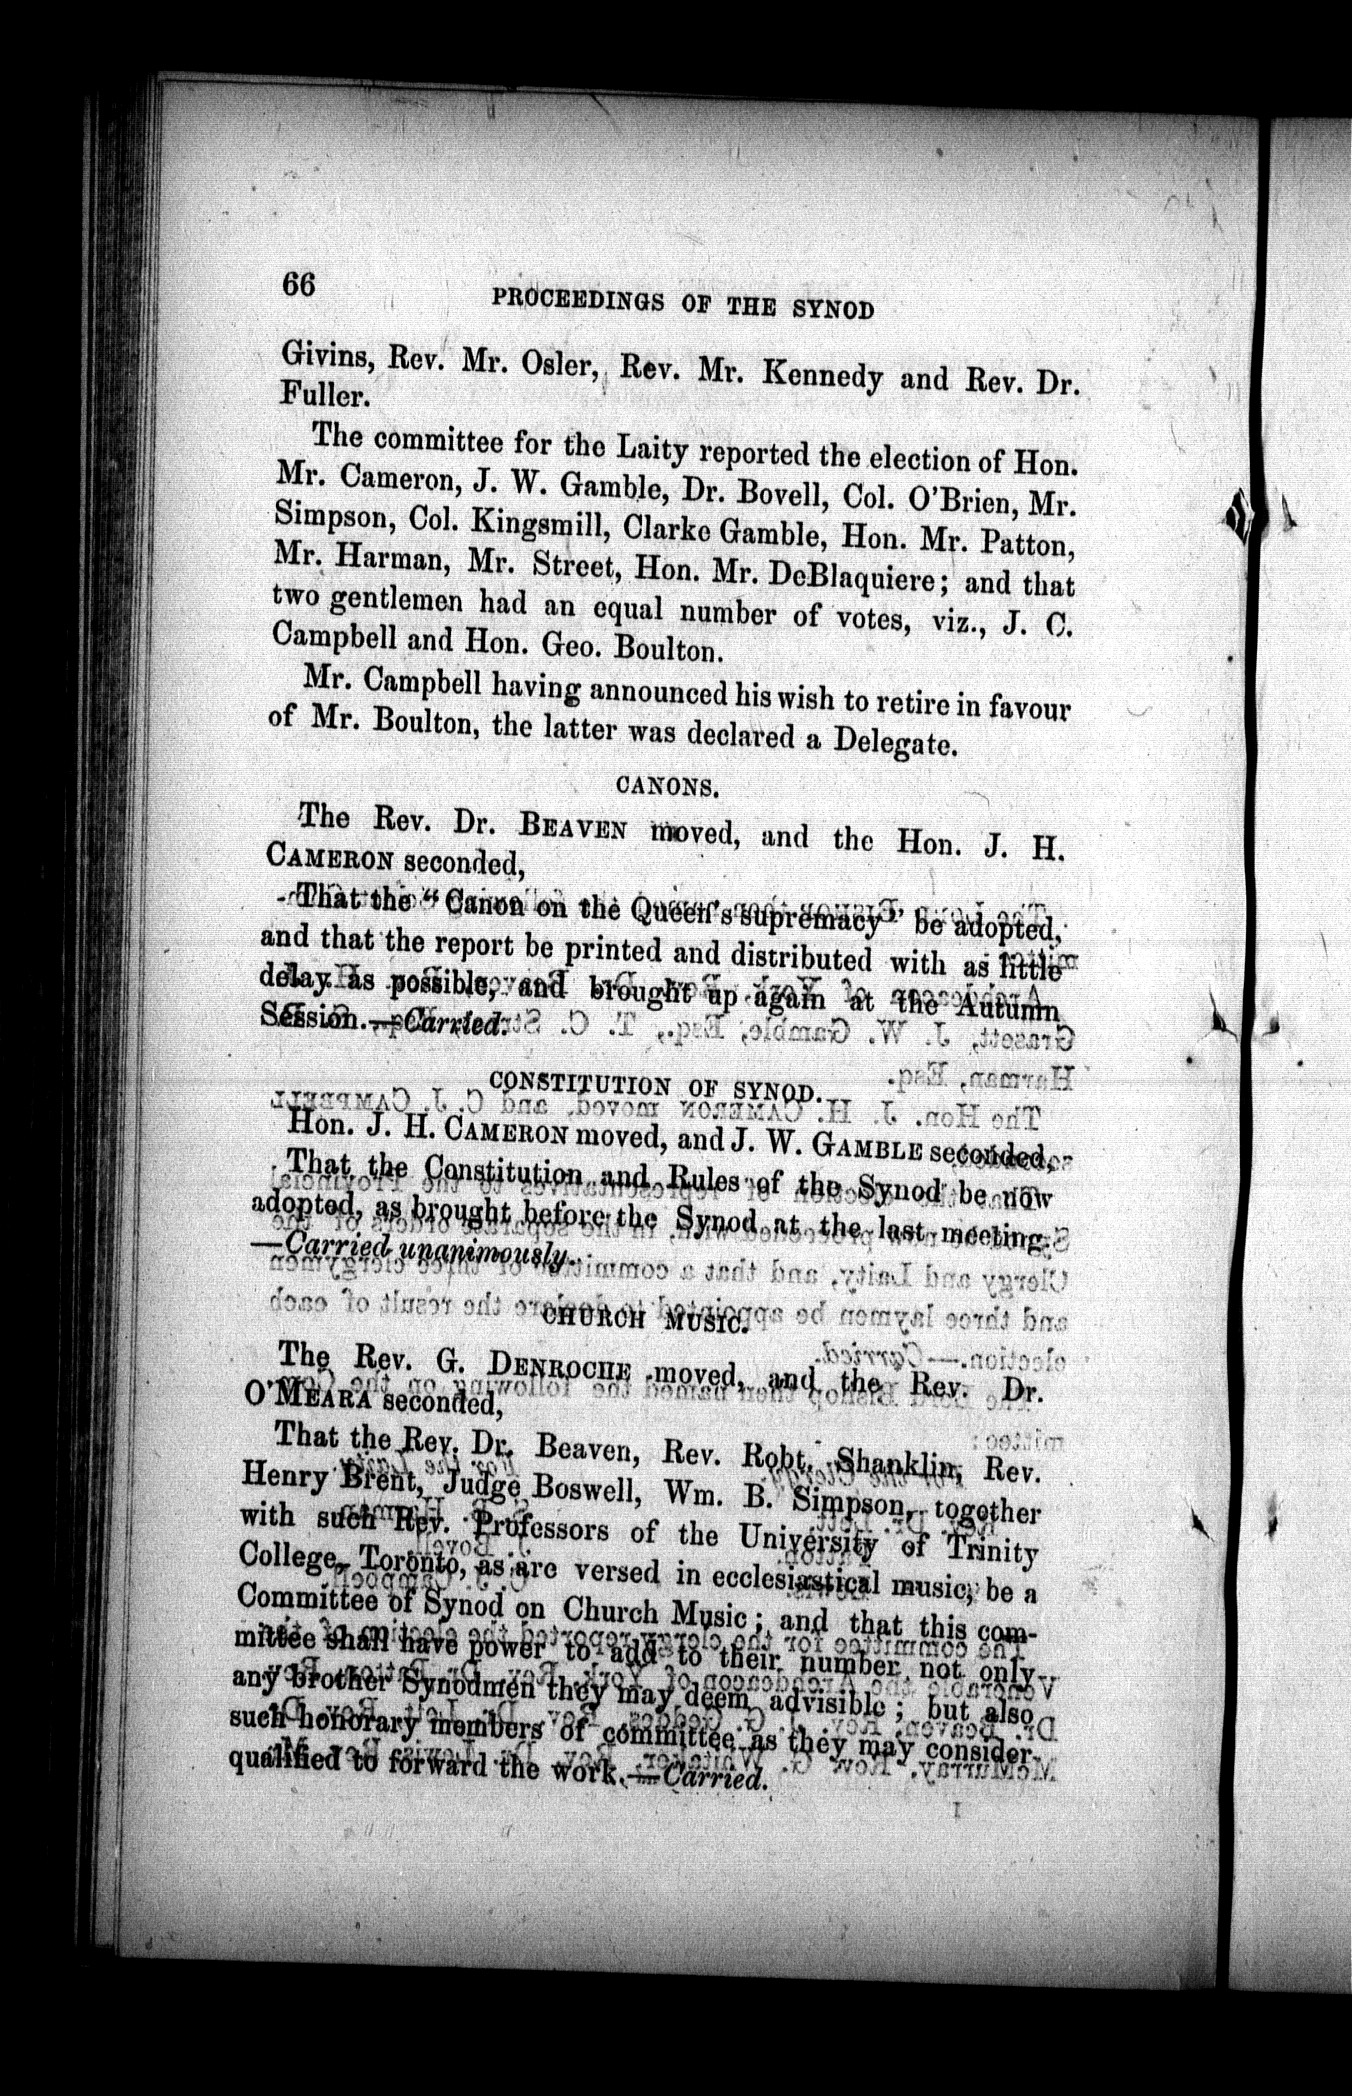 66
PROCEEDINGS OF THE SYNOD
Givins, Rev. Mr. Osler, Rev. Mr. Kennedy and Rev. Dr.
Fuller.
The committee for the Laity reported the election of Hon.
Mr. Cameron, J. W. Gamble, Dr. Bovell, Col. O'Brien, Mr.
Simpson, Col. Kingsmill, Clarke Gamble, Hon. Mr. Patton,
Mr. Harman, Mr. Street, Hon. Mr. DeBlaquiere; and that
two gentlemen had an equal number of votes, viz., J. C.
Campbell and Hon. Geo. Boulton.
Mr. Campbell having announced his wish to retire in favour
of Mr. Boulton, the latter was declared a Delegate.
CANONS.
The Rev. Dr. BEAVEN moved, and the Hon. J. H.
CAMERON seconded,
That the "Canon on the Queen's supremacy" be adopted,
and that the report be printed and distributed with as little
delay as possible, and brought up again at the Autumn
Session.—Carried.
CONSTITUTION OF SYNOD.
Hon. J. H. CAMERON moved, and J. W. GAMBLE seconded,
That the Constitution and Rules of the Synod be now
adopted, as brought before the Synod at the last meeting.
—Carried unanimously.
CHURCH MUSIC.
The Rev. G. DENROCHE moved, and the Rev. Dr.
O'MEARA seconded,
That the Rev. Dr. Beaven, Rev. Robt. Shanklin, Rev.
Henry Brent, Judge Boswell, Wm. B. Simpson, together
with such Rev. Professors of the University of Trinity
College, Toronto, as are versed in ecclesiastical music, be a
Committee of Synod on Church Music; and that this com-
mittee shall have power to add to their number not only
any brother Synodmen they may deem advisible; but also
such honorary members of committee as they may consider
qualified to forward the work.—Carried.
I